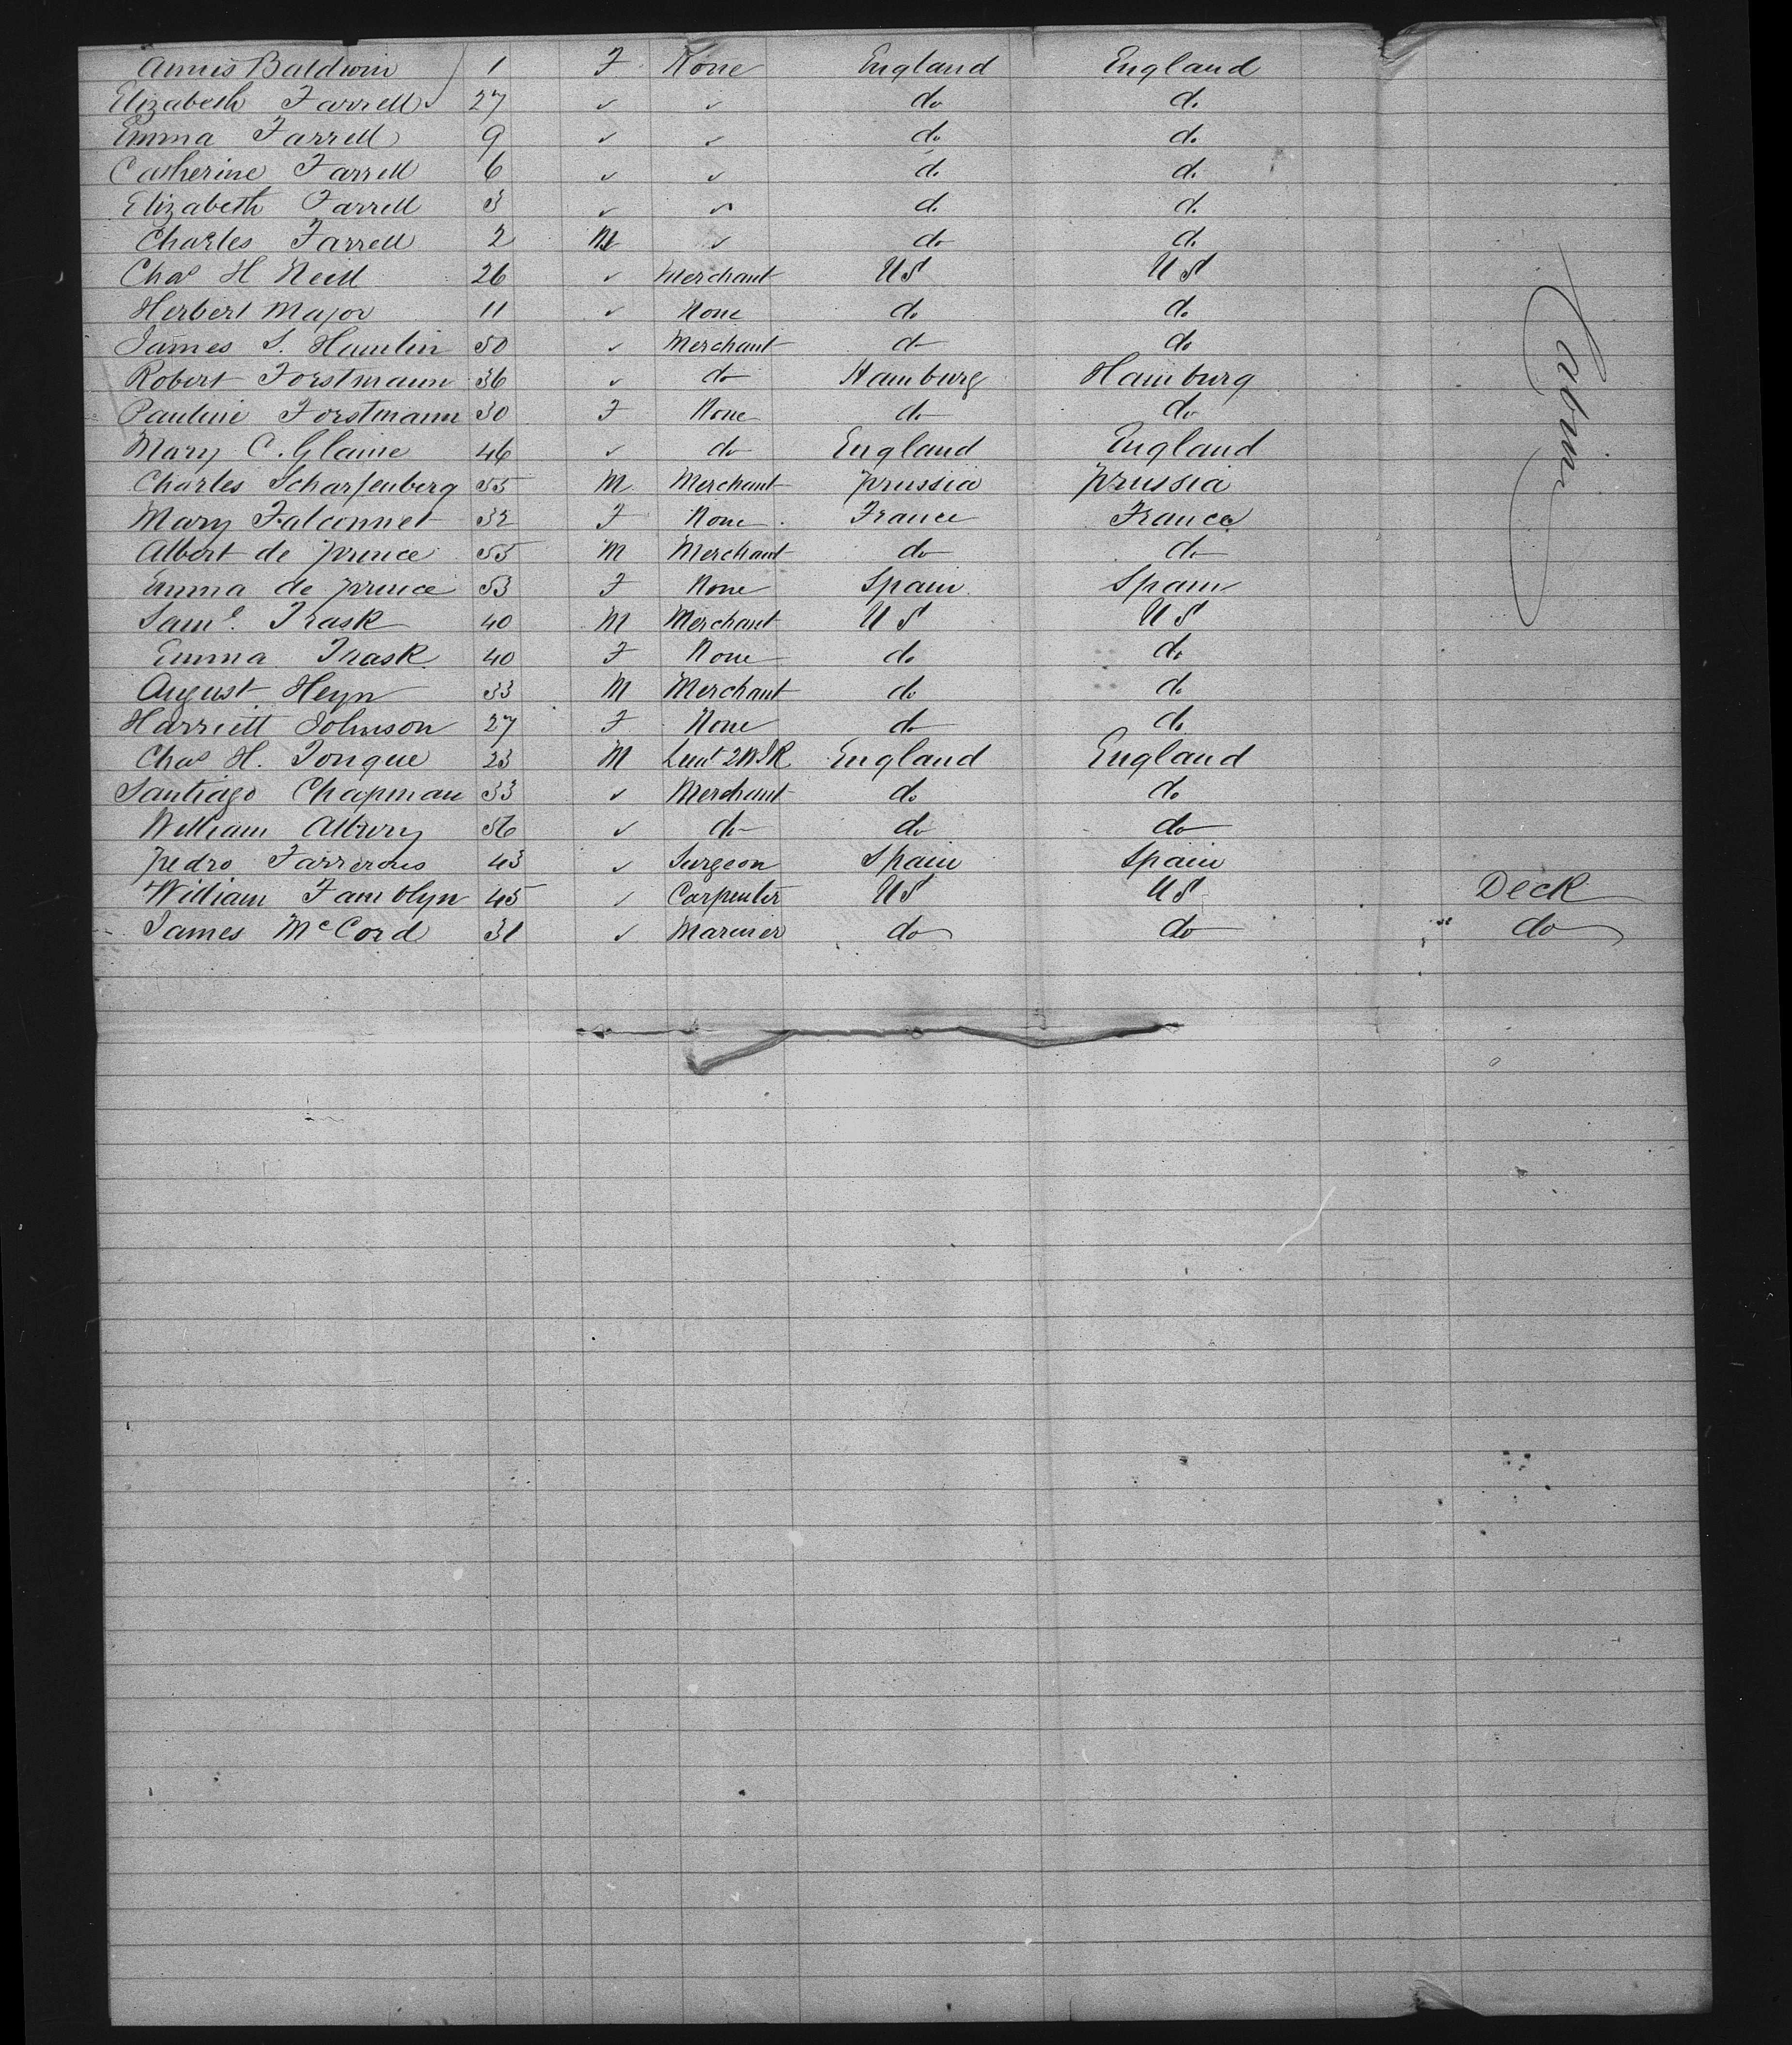 Annis Baldwin 1 F None England England
Elizabeth Farrell 27 ✓ ✓ do do
Emma Farrell 9 ✓ ✓ do do
Catherine Farrell 6 ✓ ✓ do do
Elizabeth Farrell 3 ✓ ✓ do do
Charles Farrell 2 M ✓ do do
Chas H Neill 26 ✓ Merchant US US
Herbert Major 11 ✓ None do do
James S. Hamlin 50 ✓ Merchant do do
Robert Forstmann 36 ✓ do Hamburg Hamburg
Pauline Forstmann 30 F None do do
Mary C. Glaine 46 ✓ do England England
Charles Scharfenberg 55 M Merchant Prussia Prussia
Mary Falconnet 32 F None France France
Albert de Prince 55 M Merchant do do
Emma de Prince 53 F None Spain Spain
Saml. Trask 40 M Merchant US US
Emma Trask 40 F None do do
August Heyn 33 M Merchant do do
Harriett Johnson 27 F None do do
Chas H. Tongue 23 M Lieut 2 W I R England England
Santiago Chapman 33 ✓ Merchant do do
William Albury 56 ✓ do do do
Pedro 43 ✓ Surgeon Spain Spain
William Tamblyn 45 ✓ Carpenter US US Deck
James McCord 31 ✓ Mariner do do " do
Cabin